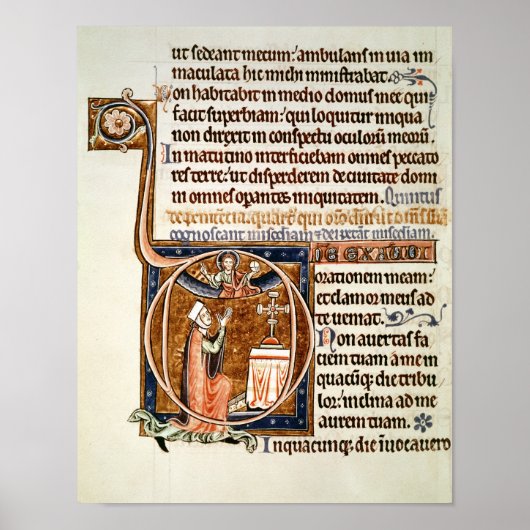 ut sedeant mecum: ambulans in uia im
maculata hic michi ministrabat.
Non habitabit in medio domus mee qui
facit superbiam: qui loquitur iniqua
non direxit in conspectu oculorum meorū.
In matutino interficiebam omnes peccato
res terre: ut disperderem de ciuitate domi
ni omnes operantes iniquitatem. Quintus
D[omi]ne exaudi
orationem meam:
et clamor meus ad
te ueniat.
Non auertas fa
ciem tuam a me in
quacūq; die tribu
lor: inclina ad me
aurem tuam.
In quacunq; die īuocauero